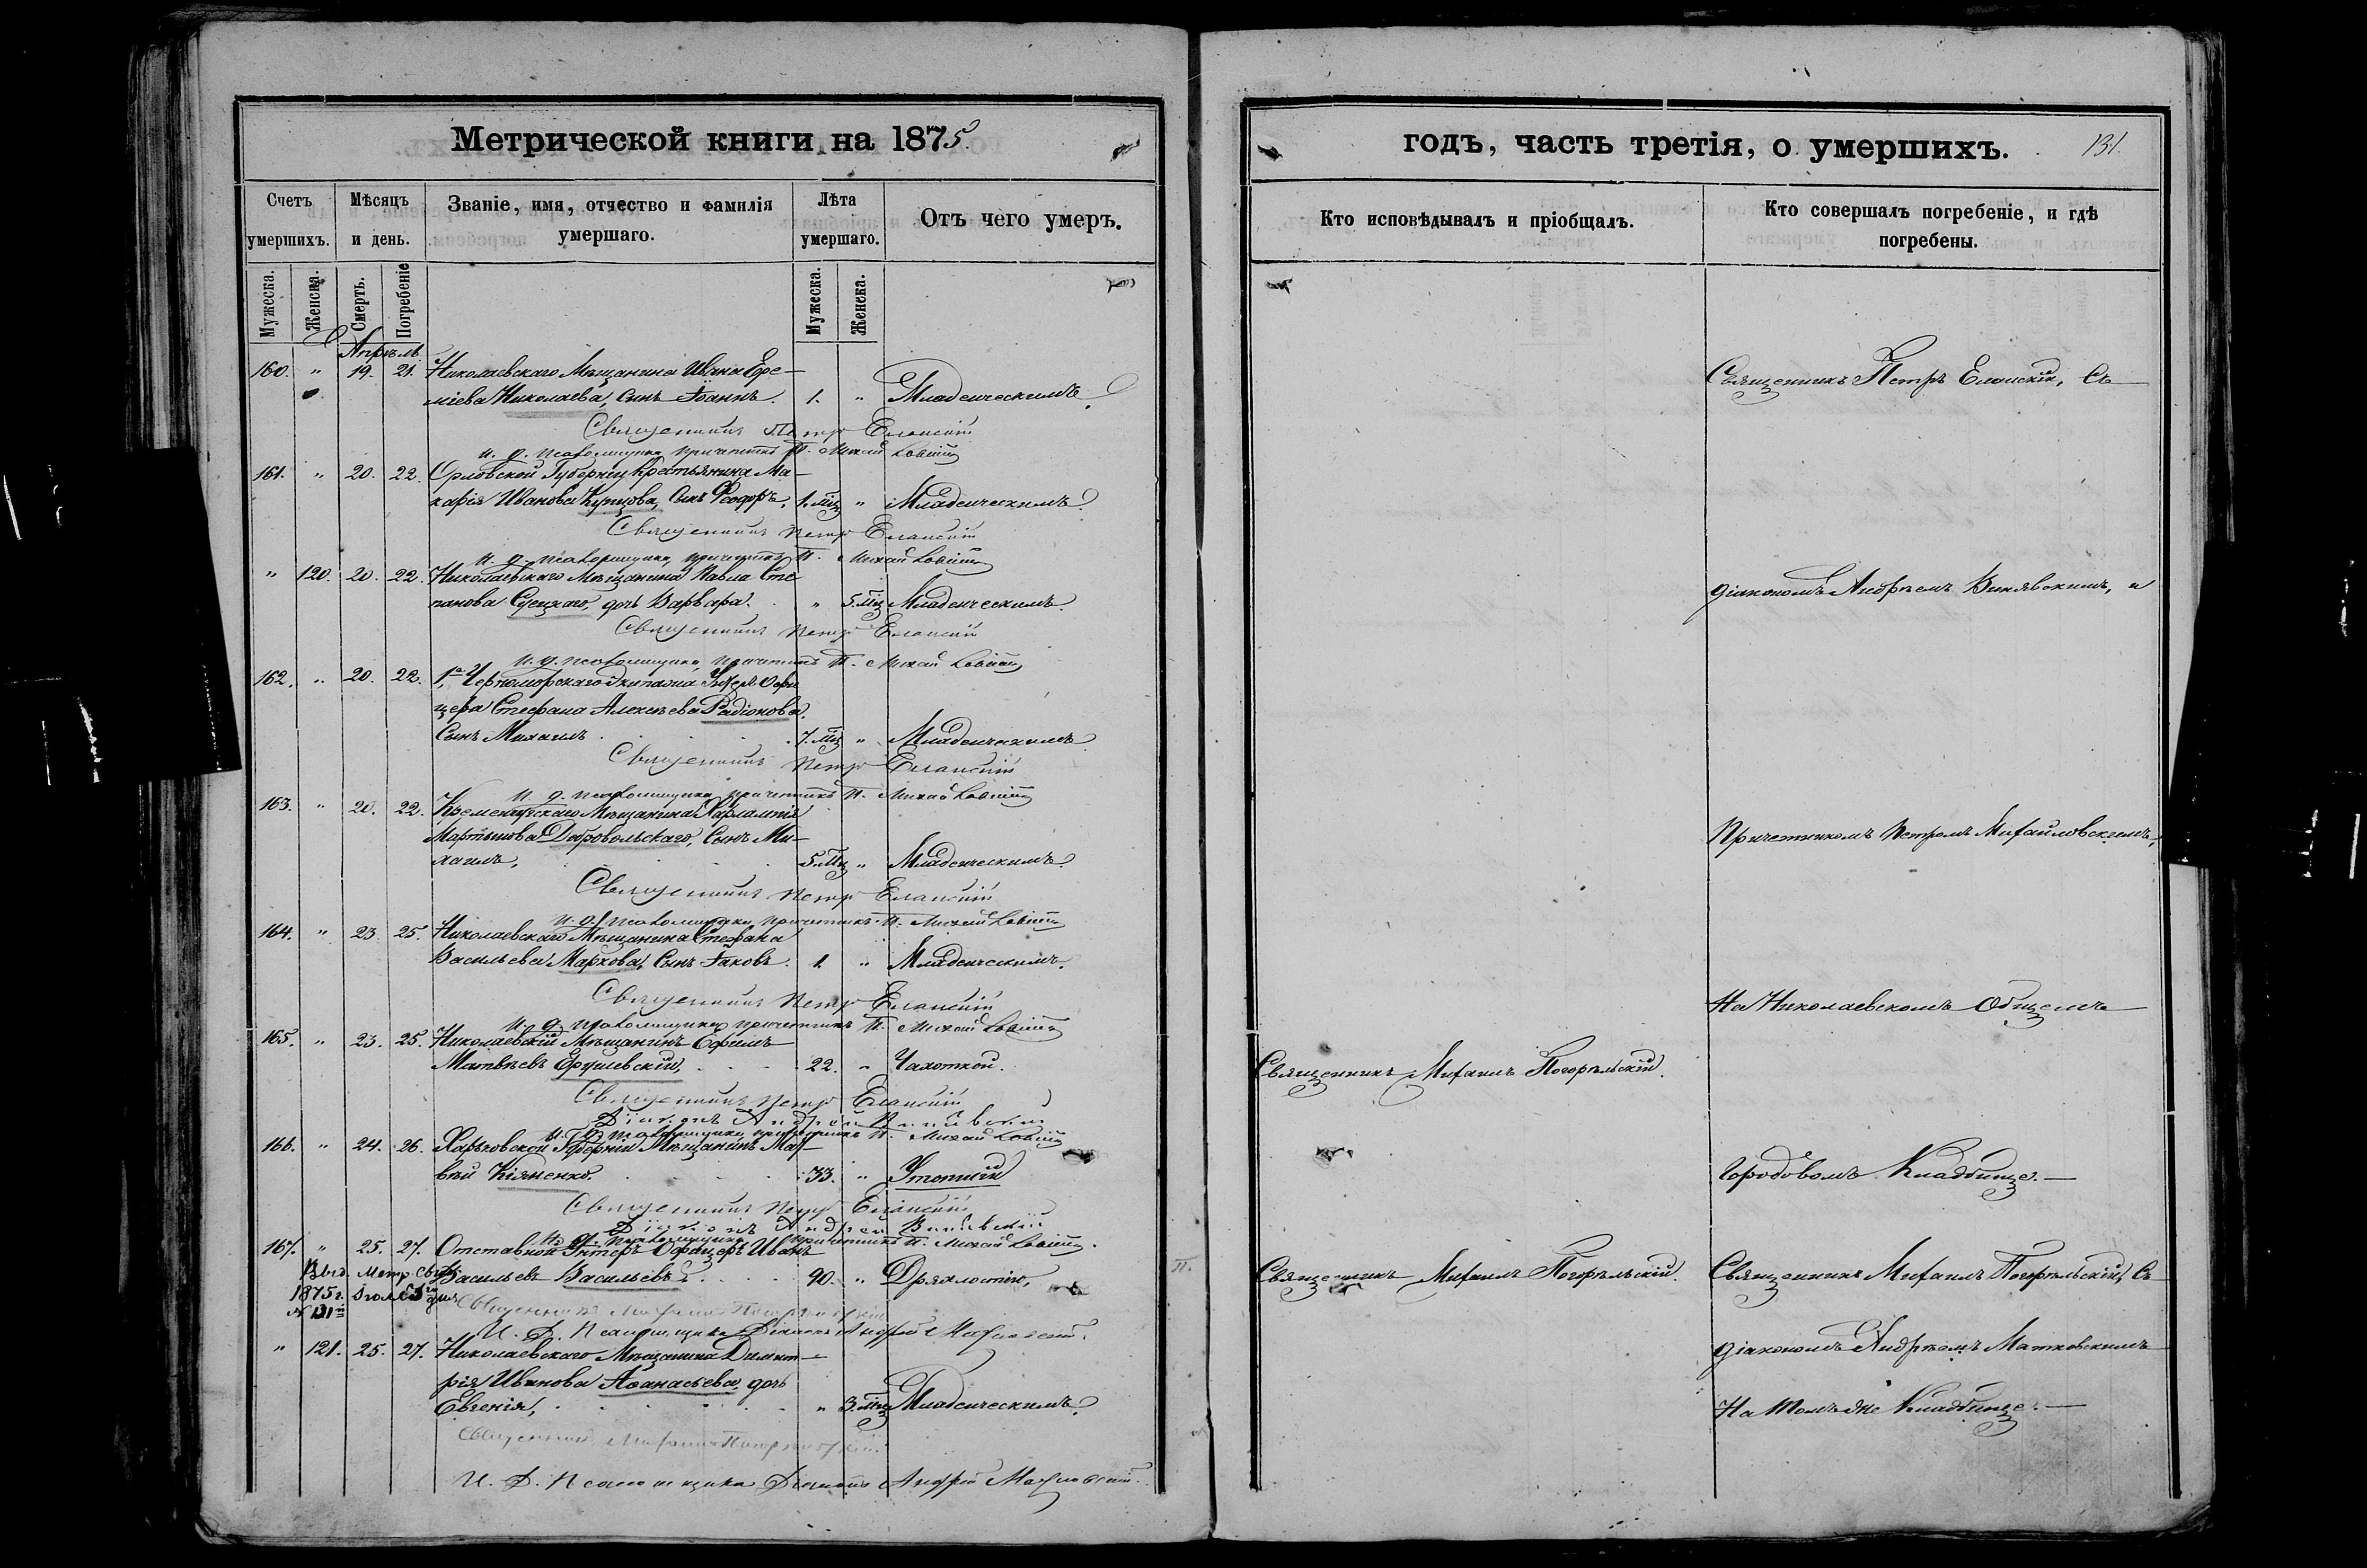 Метрической книги на 1875.
Счетъ умершихъ.
Мѣсяцъ и день.
Званіе, имя, отчество и фамилія умершаго.
Лѣта умершаго.
Отъ чего умеръ.
Мужеска.
Женска.
Смерть.
Погребеніе
Мужеска.
Женска.
Апрѣль
160. " 19. 21. Николаевскаго Мѣщанина Ивана Ере-
міева Николаева, сынъ Іоаннъ. 1. " Младенческимъ.
Священникъ Петръ Еланскій
и. д. псаломщика причетникъ П. Михайловскій
161. " 20. 22. Орловской Губерніи Крестьянина Ма-
карія Иванова Купцова, Сынъ Феодоръ, 1. мц " Младенческимъ.
Священникъ Петръ Еланскій
и. д. псаломщика причетникъ П. Михайловскій
" 120. 20. 22. Николаевскаго Мѣщанина Павла Сте-
панова дочь Варвара. " 5. мц Младенческимъ.
Священникъ Петръ Еланскій
и. д. псаломщика причетникъ П. Михайловскій
162. " 20. 22. 1го Черноморскаго Экипажа Унтеръ Офи
цера Стефана Алексѣева Радіонова,
Сынъ Михаилъ 7. мц " Младенческимъ
Священникъ Петръ Еланскій
и. д. псаломщика причетникъ П. Михайловскій
163. " 20. 22. Кременчугскаго Мѣщанина Харлампія
Мартынова Добровольскаго, Сынъ Ми-
хаилъ, 5. мц " Младенческимъ.
Священникъ Петръ Еланскій
и. д. псаломщика причетникъ П. Михайловскій
164. " 23. 25. Николаевскаго Мѣщанина Стефана
Васильева Маркова, Сынъ Іаковъ. 1. " Младенческимъ.
Священникъ Петръ Еланскій
и. д. псаломщика причетникъ П. Михайловскій
165. " 23. 25. Николаевскій Мѣщанинъ Ефимъ
Матвѣевъ 22. " Чахоткой.
Священникъ Петръ Еланскій
Діаконъ Андрей
и. д. псаломщика причетникъ П. Михайловскій
166. " 24. 26. Харьковской Губерніи Мѣщанинъ Мат-
вѣй Кіяненко. 33. " Утопшій
Священникъ Петръ Еланскій
Діаконъ Андрей
и. д. псаломщика причетникъ П. Михайловскій.
167. " 25. 27. Отставной Унтеръ Офицеръ Иванъ
Васильевъ Васильевъ 90. " Дряхлостію,
Выд. Метр. Свид.
1875 г. дня
№ 131
Священникъ Михаилъ Погорѣльскій
И. Д. Псаломщика Діаконъ Андрей Матковскій.
" 121. 25. 27. Николаевскаго Мѣщанина Димит-
рія Иванова Аѳанасьева, дочь
Евгенія, " 3. мц Младенческимъ.
Священникъ Михаилъ Погорѣльскій
И. Д. Псаломщика Діаконъ Андрей Матковскій.
годъ, часть третія, о умершихъ. 131.
Кто исповѣдывалъ и пріобщалъ.
Кто совершалъ погребеніе, и гдѣ погребены.
Священникъ Петръ Еланскій, Съ
діакономъ Андреемъ и
Причетникомъ Петромъ Михайловскимъ,
На Николаевскомъ Общемъ
Священникъ Михаилъ Погорѣльскій.
Городовомъ Кладбище.
Священникъ Михаилъ Погорѣльскій.
Священникъ Михаилъ Погорѣльскій, Съ
діакономъ Андреемъ Матковскимъ
На томъ же Кладбище.